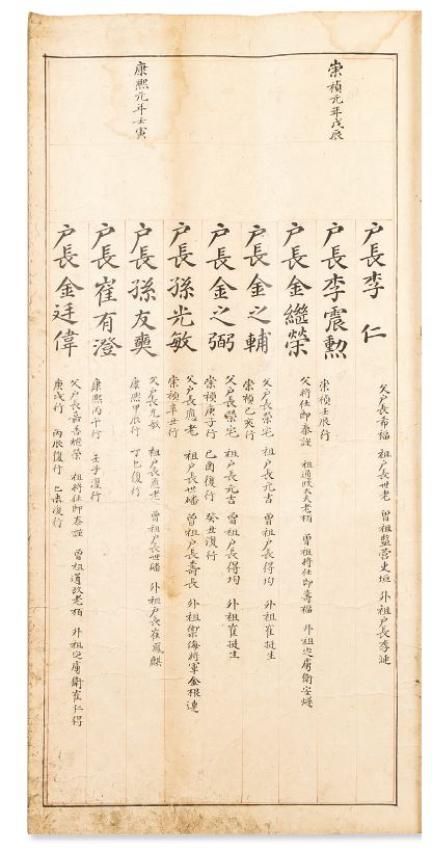 崇禎元年戊辰
戶長李仁
父戶長希福 祖戶長世老 曾祖監營吏垣 外祖戶長李漣
戶長李震勲
崇禎壬辰行
戶長金繼榮
父將仕郎泰謹 祖通政大夫老栢 曾祖將仕郎壽福
戶長金之輔
父戶長榮宅 祖戶長元吉 曾祖戶長得均 外祖崔挻生
崇禎乙亥行
戶長金之弼
父戶長榮宅 祖戶長元吉 曾祖戶長得均 外祖崔挻生
崇禎庚子行 己酉復行 癸丑復行
戶長孫光敏
父戶長應老 祖戶長世皤 曾祖戶長壽長 外祖禦侮將軍金根連
崇禎辛丑行
康熙元年壬寅
戶長孫友奭
父戶長光敏 祖戶長應老 曾祖戶長世皤 外祖戶長崔鳳麒
康熙甲辰行 丁巳復行
戶長崔有澄
康熙丙午行 壬子復行
戶長金廷偉
父戶長嘉善繼榮 祖將仕郎泰謹 曾祖通政老栢 外祖定虜衛崔仁得
庚戌行 丙辰復行 己未復行